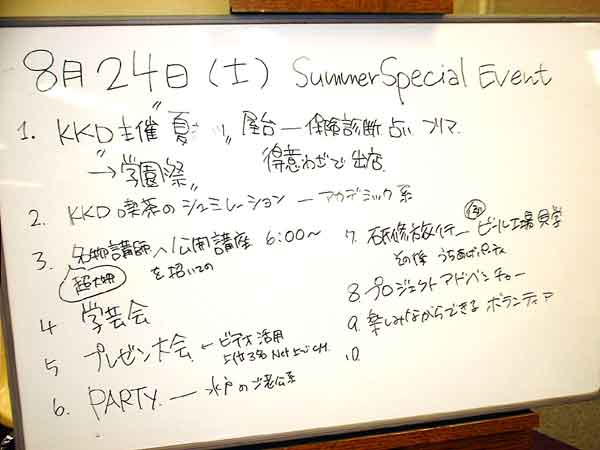 8月24日(土) Summer Special Event
1. KKD主催 "夏 " 屋台ー保険診断 占い フリマ
"→学園祭" 得意わざで出店
2. KKD喫茶のシュミレーション ー アカデミック系
3. 名物講師 公開講座 6:00〜
超大物 を招いての
4 学芸会
5 プレゼン大会 ← ビデオ活用
上位3名 Net上
6. PARTY. ー 水戸のご老公系
7. 研修旅行 ー ビール工場見学
その後 うちあげパーティ
8. プロジェクトアドベンチャー
9. 楽しみながらできる ボランティア
10.